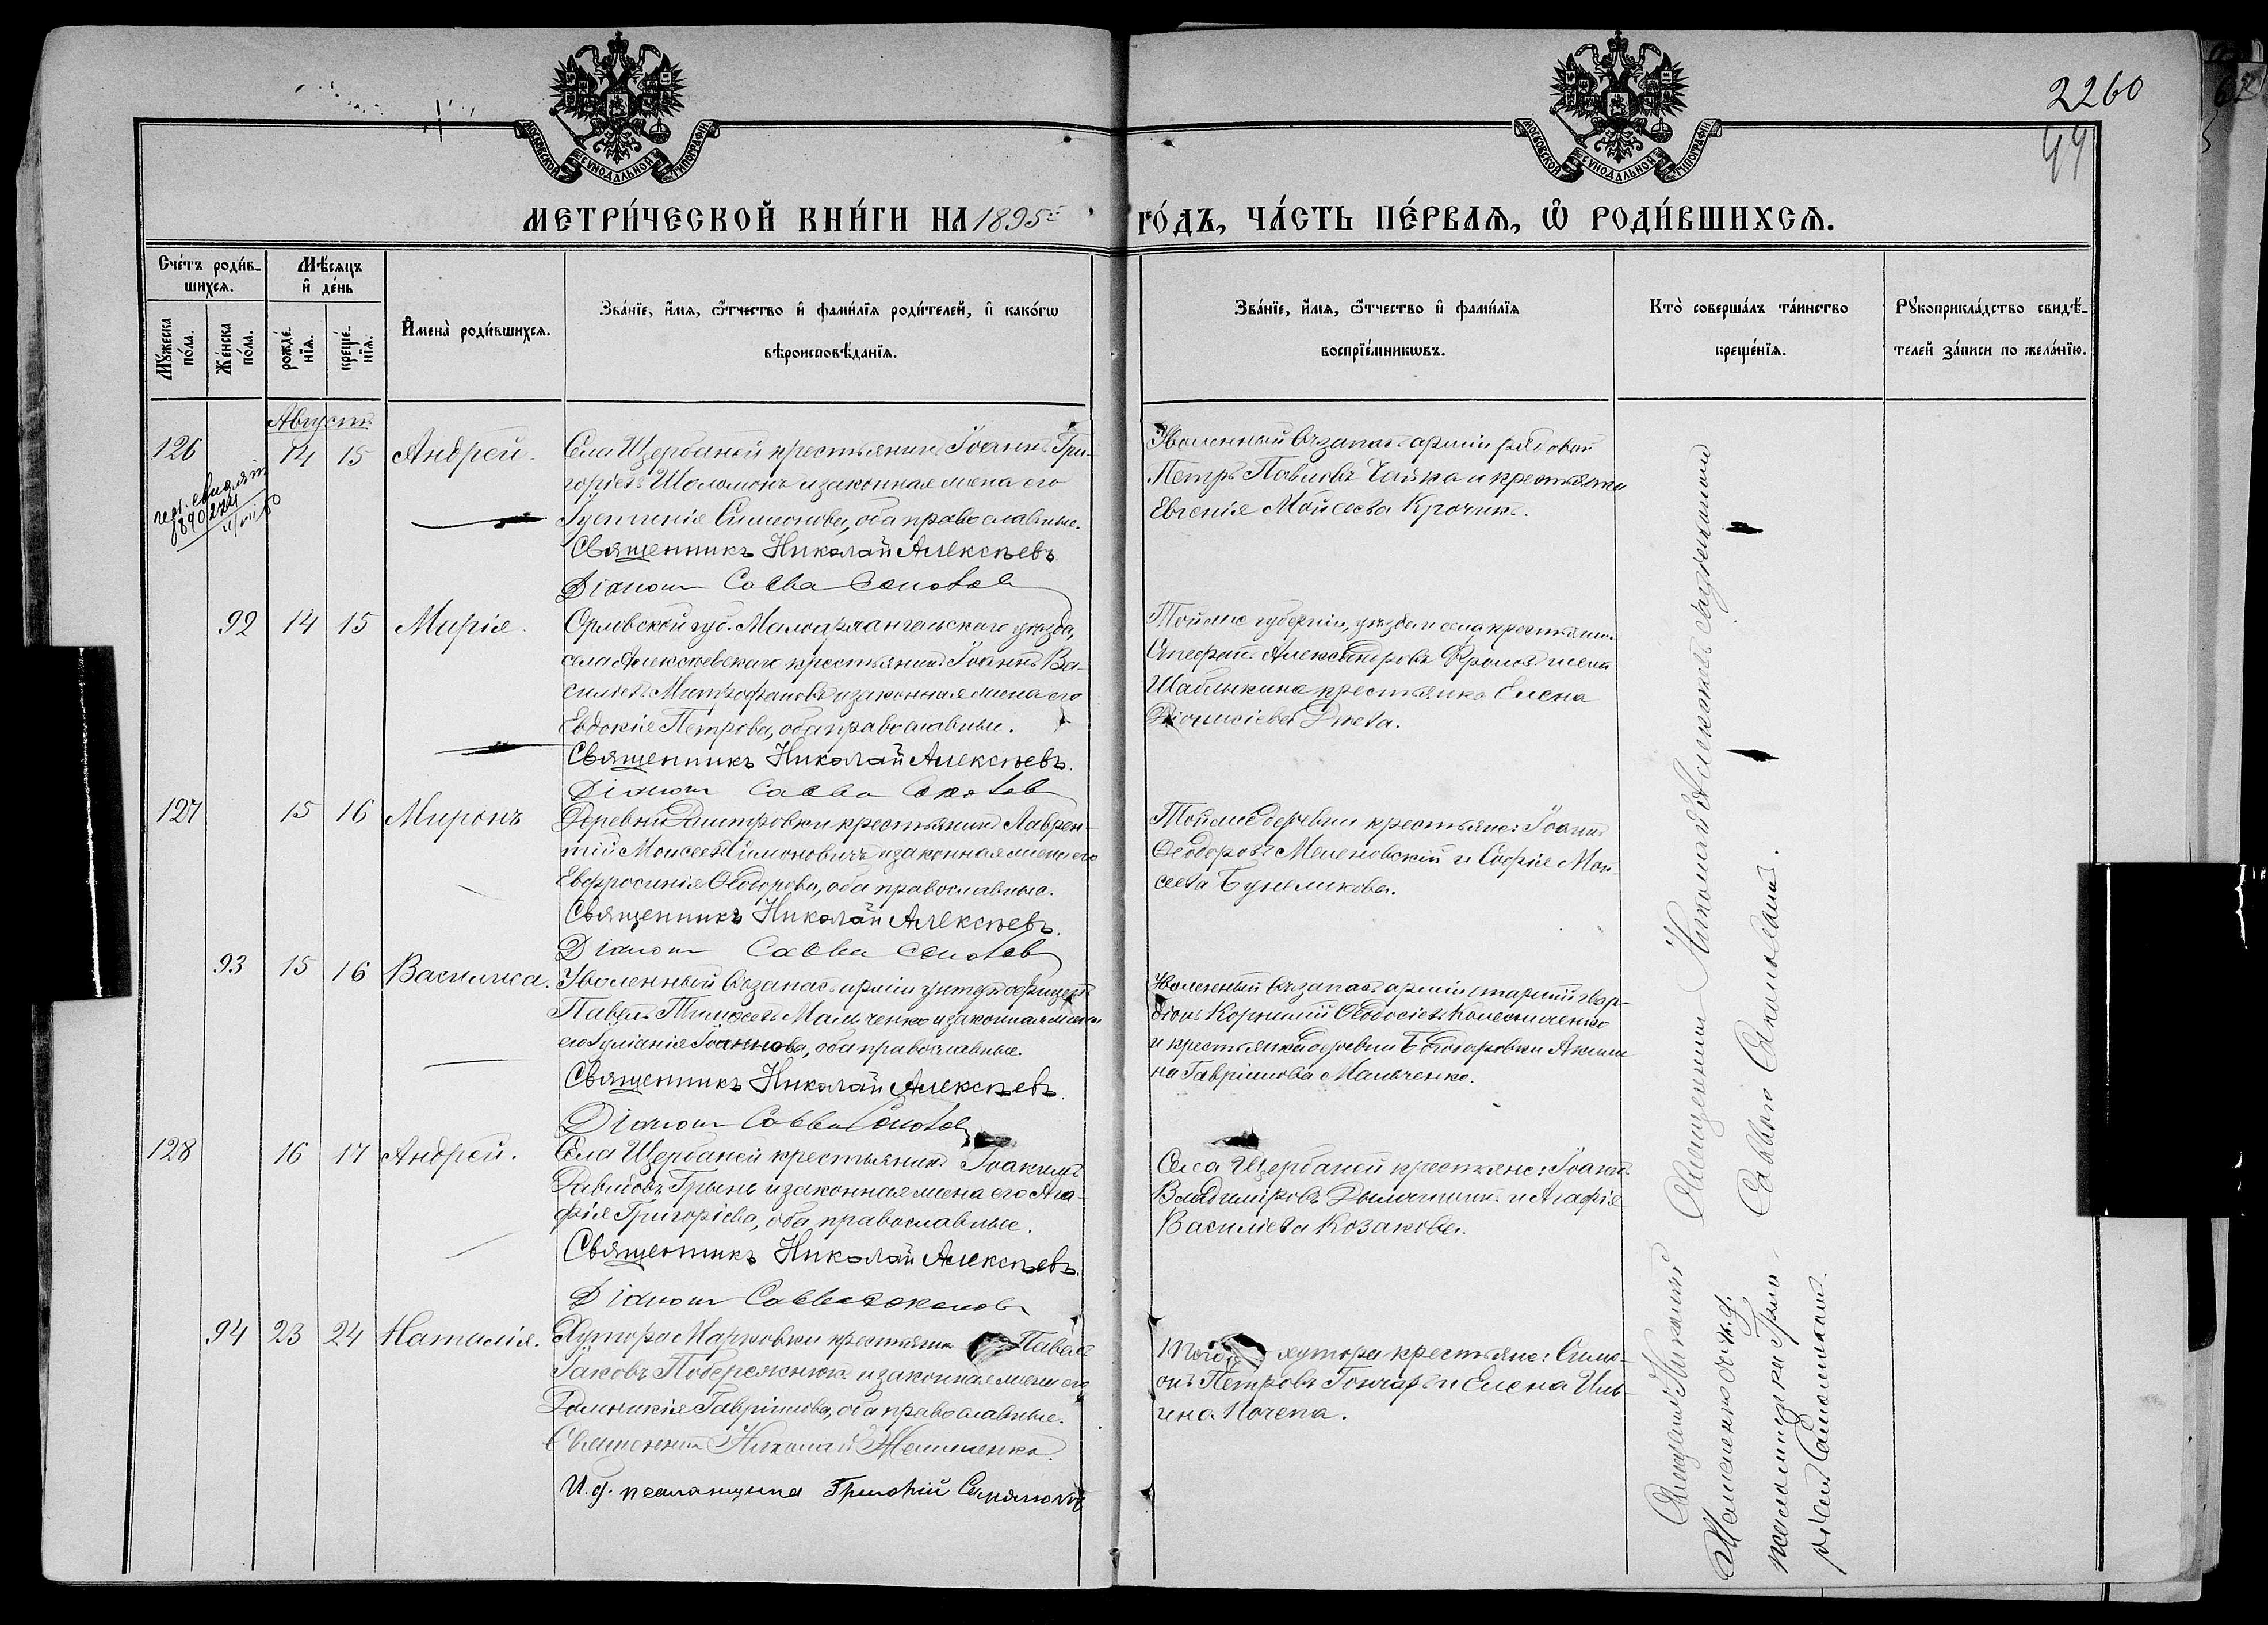 2260
44
МОСКОВСКОЙ СѴНОДАЛЬНОЙ ТИПОГРАФІИ
МОСКОВСКОЙ СѴНОДАЛЬНОЙ ТИПОГРАФІИ
МЕТРИ́ЧЕСКОЙ КНИ́ГИ НА 1895й
ГО́ДЪ, ЧА́СТЬ ПЕ́РВАѦ, Ѡ҆ РОДИ́ВШИХСѦ.
Сче́тъ роди́в-
шихсѧ.
Мꙋ́жеска по́ла.
Же́нска по́ла.
Мѣ́сѧцъ и҆ де́нь
рожде́нїѧ.
креще́нїѧ.
И҆мена̀ роди́вшихсѧ.
Зва́нїе, и҆́мѧ, ѻ҆́тчество и҆ фамѝлїѧ роди́телей, и҆ како́гѡ
вѣроисповѣ́данїѧ.
Зва́нїе, и҆́мѧ, ѻ҆́тчество и҆ фамѝлїѧ
воспрїе́мникѡвъ.
Кто̀ соверша́лъ та́инство
креще́нїѧ.
Рꙋкоприкла́дство свидѣ́-
телей за́писи по жела́нїю.
Августъ
126 14 15 Андрей.
Села Щербаней крестьянинъ Іоаннъ Гри-
горіевъ Шоломонъ и законная жена его
Іустинія Симеонова, оба православные.
Священникъ Николай Алексѣевъ
Діаконъ Савва
Уволенный въ запасъ арміи рядовой
Петръ Павловъ Чайка и крестьянка
Евгенія Моисеева
92 14 15 Марія.
Орловской губ. Малоархангельскаго уѣзда,
села Алексѣевскаго крестьянинъ Іоаннъ Ва-
сильевъ Митрофановъ и законная жена его
Евдокія Петрова, оба православные.
Священникъ Николай Алексѣевъ.
Діаконъ Савва
Той же губерніи, уѣзда и села крестьянинъ
Стефанъ Александровъ
крестьянка Елена
Діонисіева
127 15 16 Миронъ
Деревни Дмитровки крестьянинъ Лаврен-
тій Моисеевъ Симоновичъ и законная жена его
Евфросинія Ѳеодорова, оба православные.
Священникъ Николай Алексѣевъ.
Діаконъ Савва
Той же деревни крестьяне: Іоаннъ
Ѳеодоровъ Меленовскій и Софія Мои-
сеева
93 15 16 Василиса.
Уволенный въ запасъ арміи унтеръ офицеръ
Павелъ Тимоѳеевъ Мальченко и законная жена
его Іуліанія Іоаннова, оба православные.
Священникъ Николай Алексѣевъ.
Діаконъ Савва
Уволенный въ запасъ арміи старшій
Корнилій Ѳеодосіевъ Колесниченко
и крестьянка деревни Акили-
на Гавріилова Мальченко.
128 16 17 Андрей.
Села Щербаней крестьянинъ Іоакимъ
Давидовъ Грынь и законная жена его Ага-
фія Григоріева, оба православные.
Священникъ Николай Алексѣевъ.
Діаконъ Савва
Села Щербаней крестьяне: Іоаннъ
Владиміровъ и Агафія
Василіева Козакова.
94 23 24 Наталія.
Хутора Марковки крестьянинъ Павелъ
Іаковъ Побережнюкъ и законная жена его
Домникія Гавріилова, оба православные.
Священникъ Николай
И. д. псаломщика Григорій
хутора крестьяне: Симе-
онъ Петровъ Гончаръ и Елена Иль-
ина Кочева.
Священникъ Николай Алексѣевъ съ діакономъ
Саввою
Священникъ Николай
съ и. д.
псаломщика Григо-
ріемъ